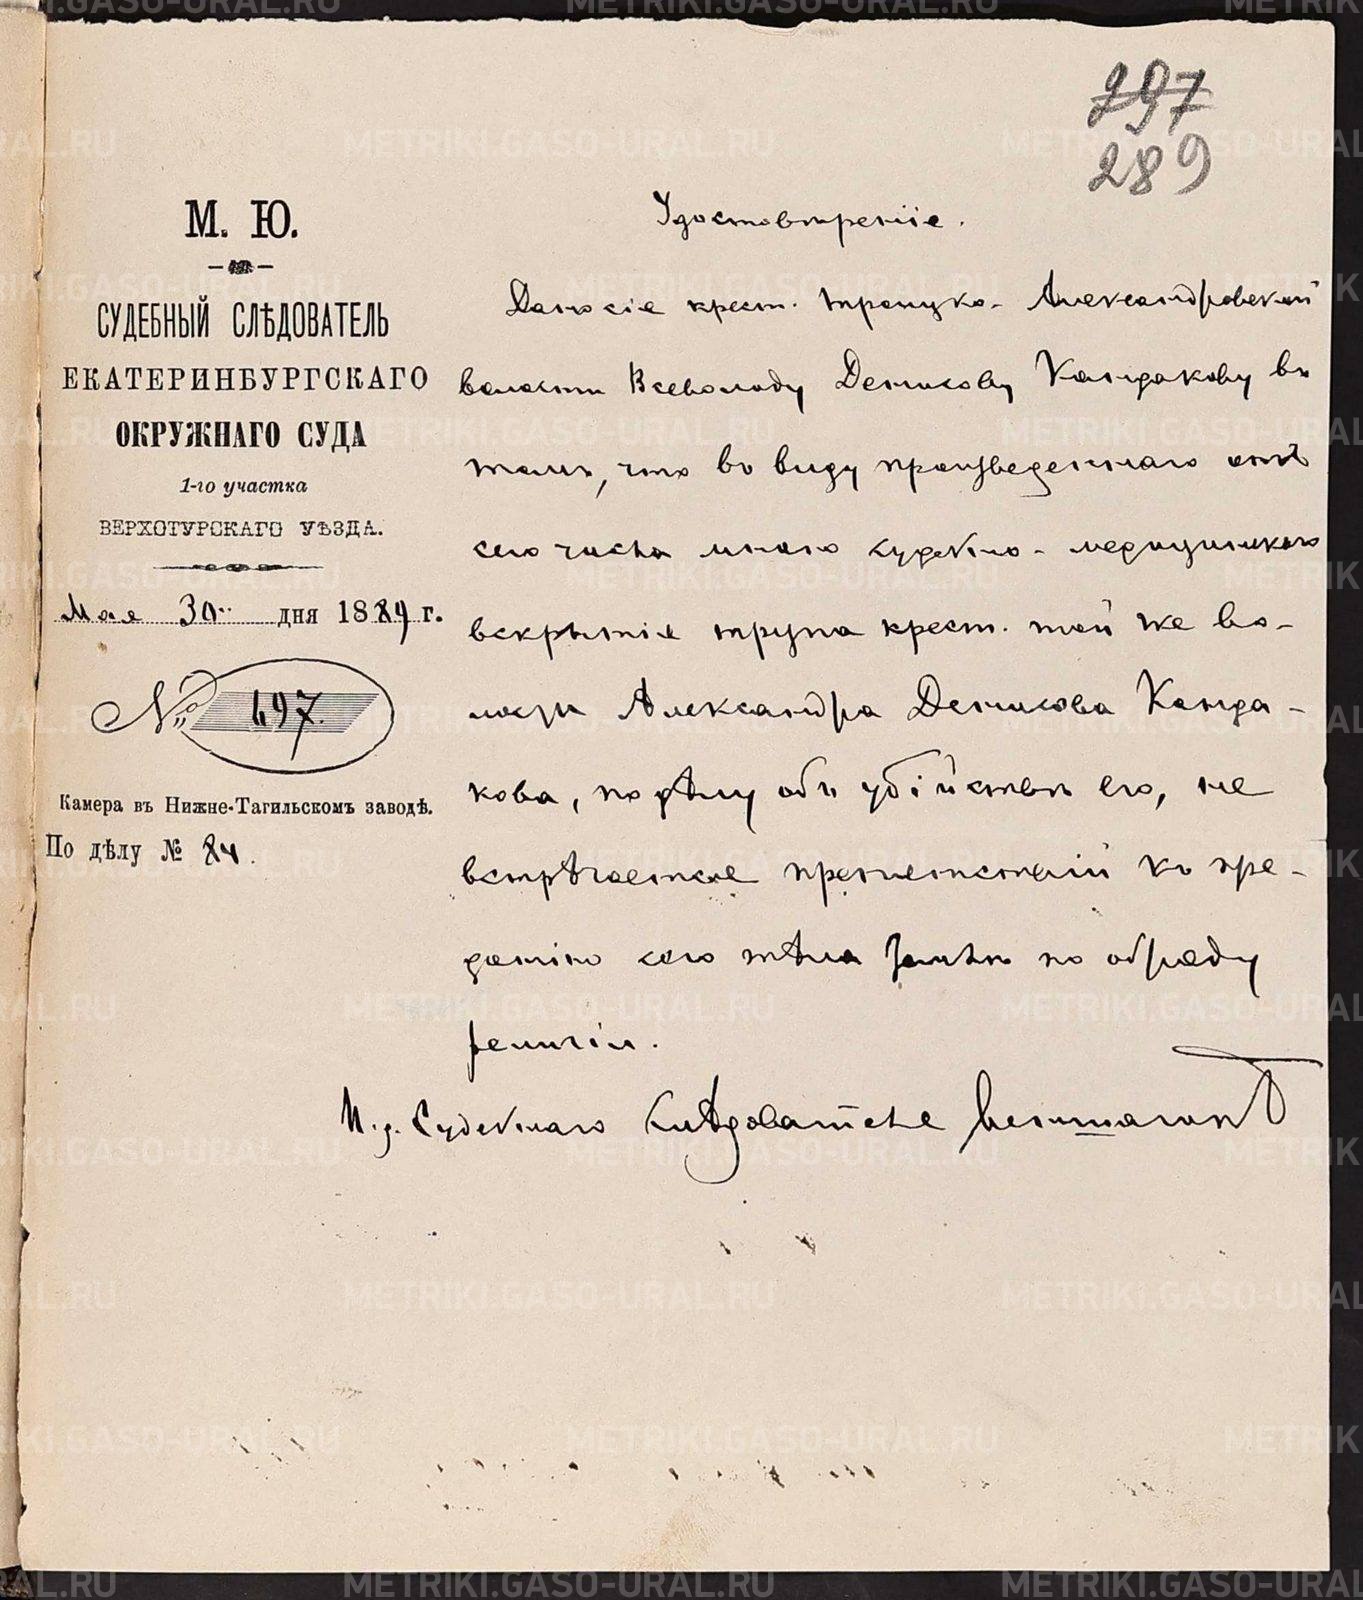 297
289
М. Ю.
СУДЕБНЫЙ СЛѢДОВАТЕЛЬ
ЕКАТЕРИНБУРГСКАГО
ОКРУЖНАГО СУДА
1-го участка
ВЕРХОТУРСКАГО УѢЗДА.
Мая 30 дня 1889 г.
№ 697.
Камера въ Нижне-Тагильскомъ заводѣ.
По дѣлу № 84.
Удостовѣреніе.
Дано сіе крест. Троицко-Александровской
волости Всеволоду Денисову Кандакову въ
томъ, что въ виду произведеннаго
сего числа мною судебно-медицинскаго
вскрытія трупа крест. той же во-
лости Александра ДенисоваКанда-
кова, по дѣлу объ убійствѣ его, не
встрѣчается препятствій къ пре-
данію его тѣла землѣ по обряду
религіи.
И. д. Судебнаго Слѣдователя
METRIKI.GASO-URAL.RU